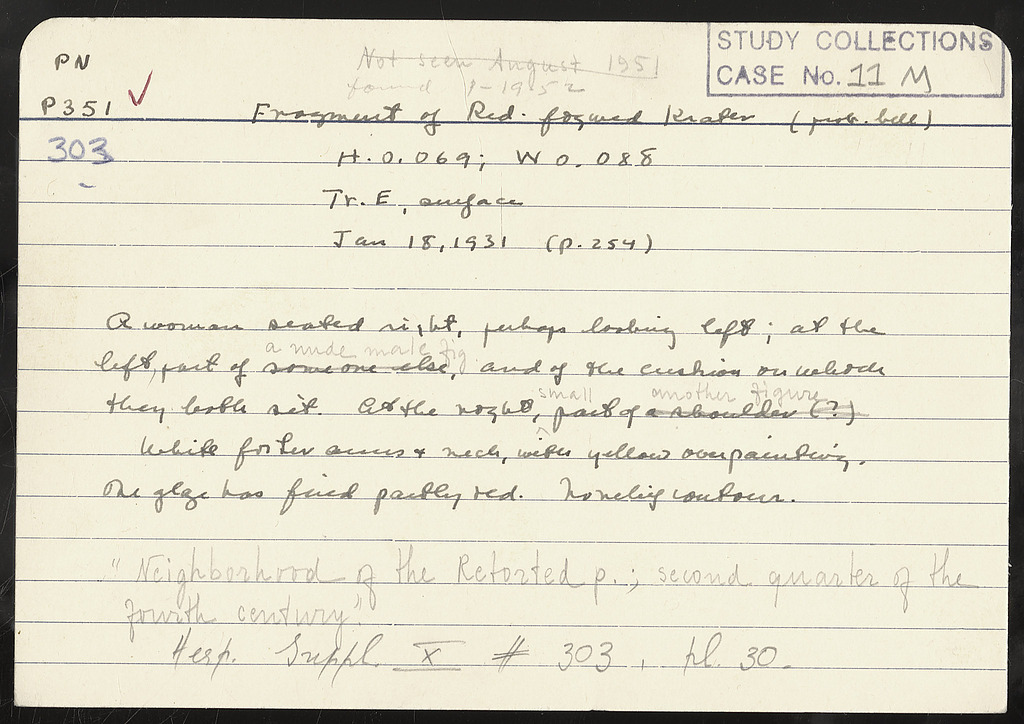 PN
STUDY COLLECTIONS
CASE No. 11 M
Not seen August 1951
found 1952
P351
Fragment of Red-figured Krater (prob. bell)
303
H. 0.069; W 0.088
Tr. E, surface
Jan 18, 1931 (p. 254)
A woman seated right, perhaps looking left; at the
a nude male fig.
left, part of someone else, and of the cushion on which
small another figure
they both sit. At the right, part of a shoulder (?)
White for her arms & neck, with yellow overpainting.
The glaze has fired partly red. No relief contour.
"Neighborhood of the Retorted p.; second quarter of the
fourth century."
Hesp. Suppl. X # 303, pl. 30.